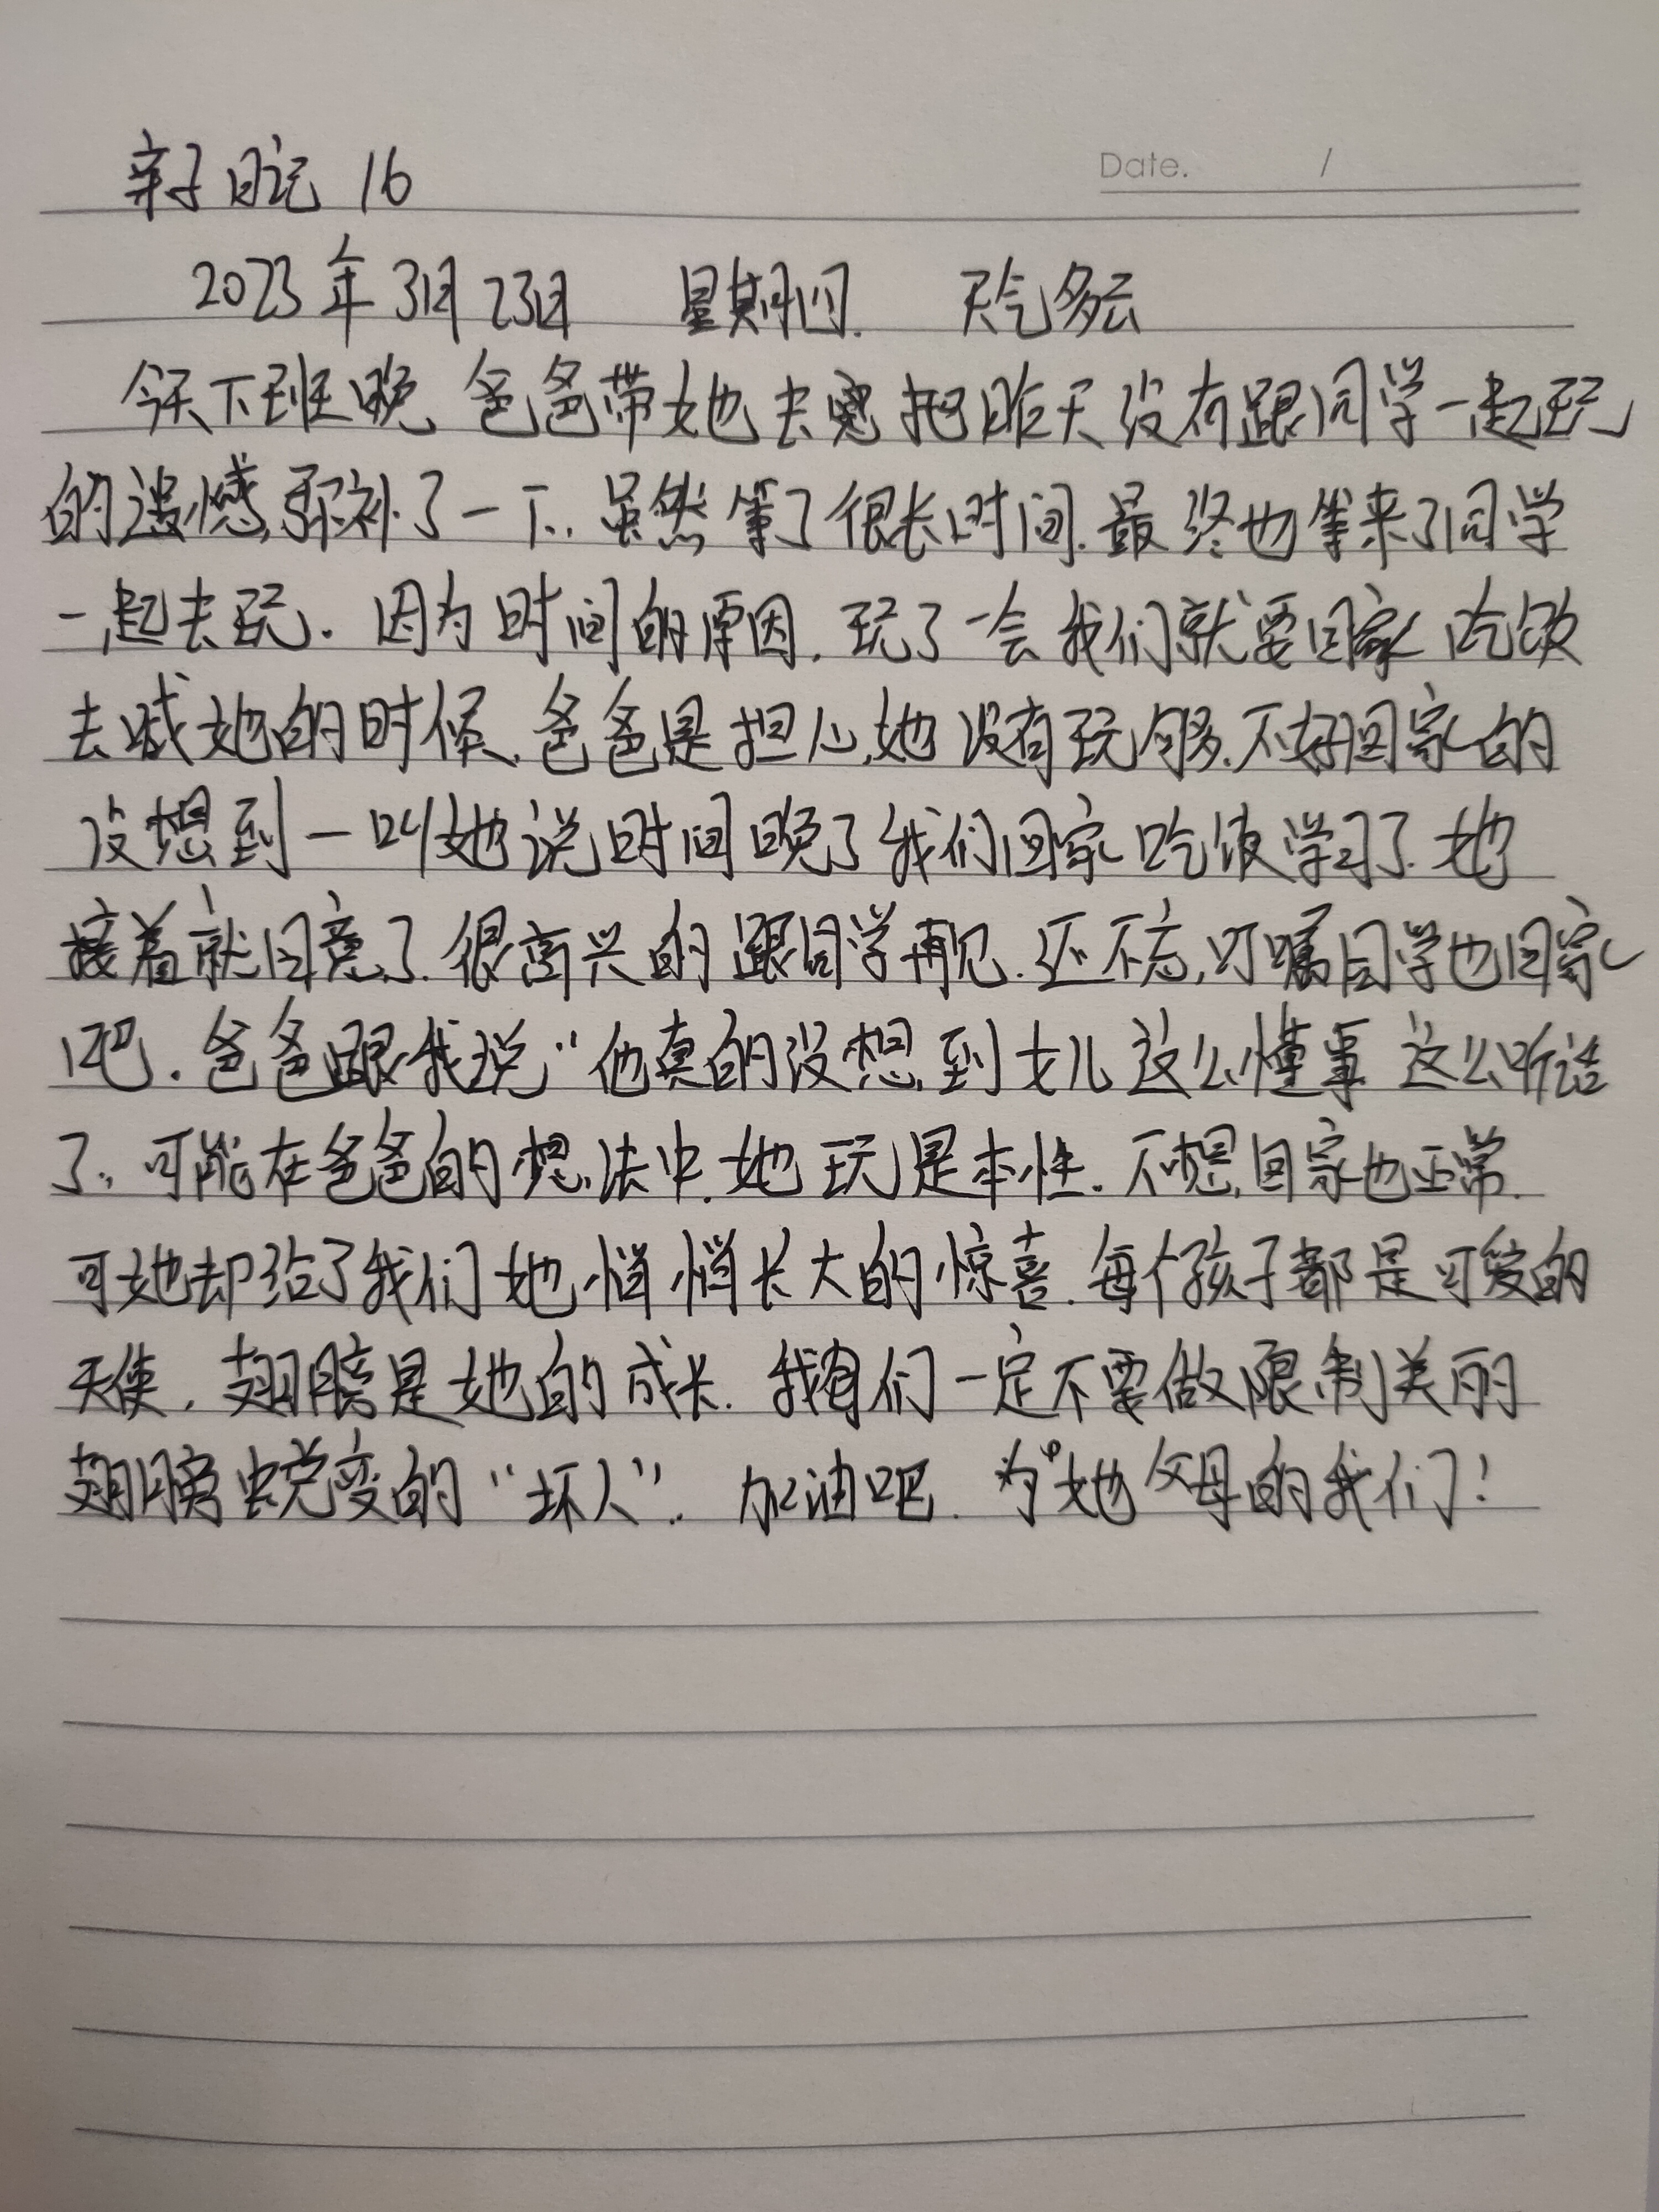 Date. /
亲子日记 16
2023年3月23日 星期四. 天气多云
今天下班晚,爸爸带她去 把昨天没有跟同学一起玩
的遗憾,弥补了一下.虽然等了很长时间.最终也等来了同学
一起去玩.因为时间的原因.玩了一会我们就要回家吃饭
去喊她的时候,爸爸是担心她没有玩够.不好回家的
没想到一叫她说时间晚了我们回家吃饭学习了.她
接着就同意了.很高兴的跟同学再见.还不忘,叮嘱同学也回家
吧.爸爸跟我说“他真的没想到女儿这么懂事 这么听话
了.可能在爸爸的想法中.她玩是本性.不想回家也正常.
可她却给了我们她悄悄长大的惊喜.每个孩子都是可爱的
天使.翅膀是她的成长.我们一定不要做限制美丽
翅膀蜕变的“坏人”.加油吧.为她父母的我们!